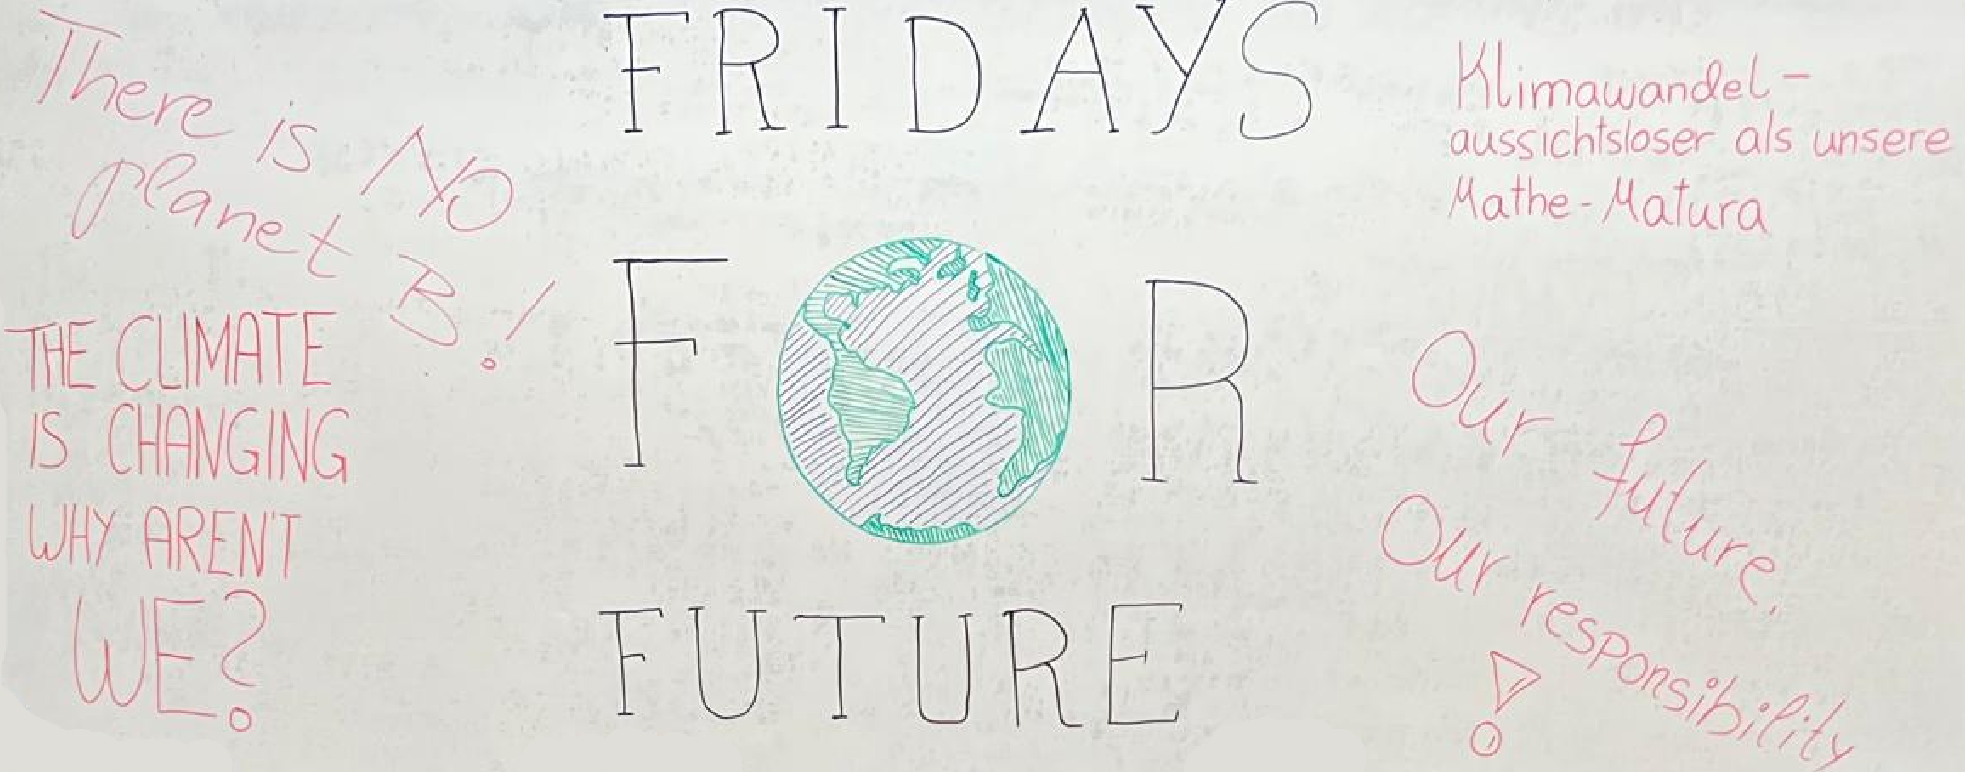 There is NO
planet B!
THE CLIMATE
IS CHANGING
WHY AREN'T
WE?
FRIDAYS
FOR
FUTURE
Klimawandel -
aussichtsloser als unsere
Mathe-Matura
Our future.
Our responsibility
!